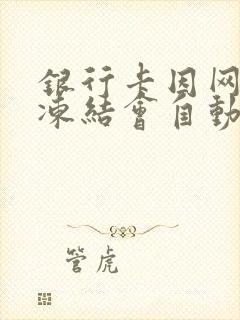 銀行卡因网
凍結會自動
管虎